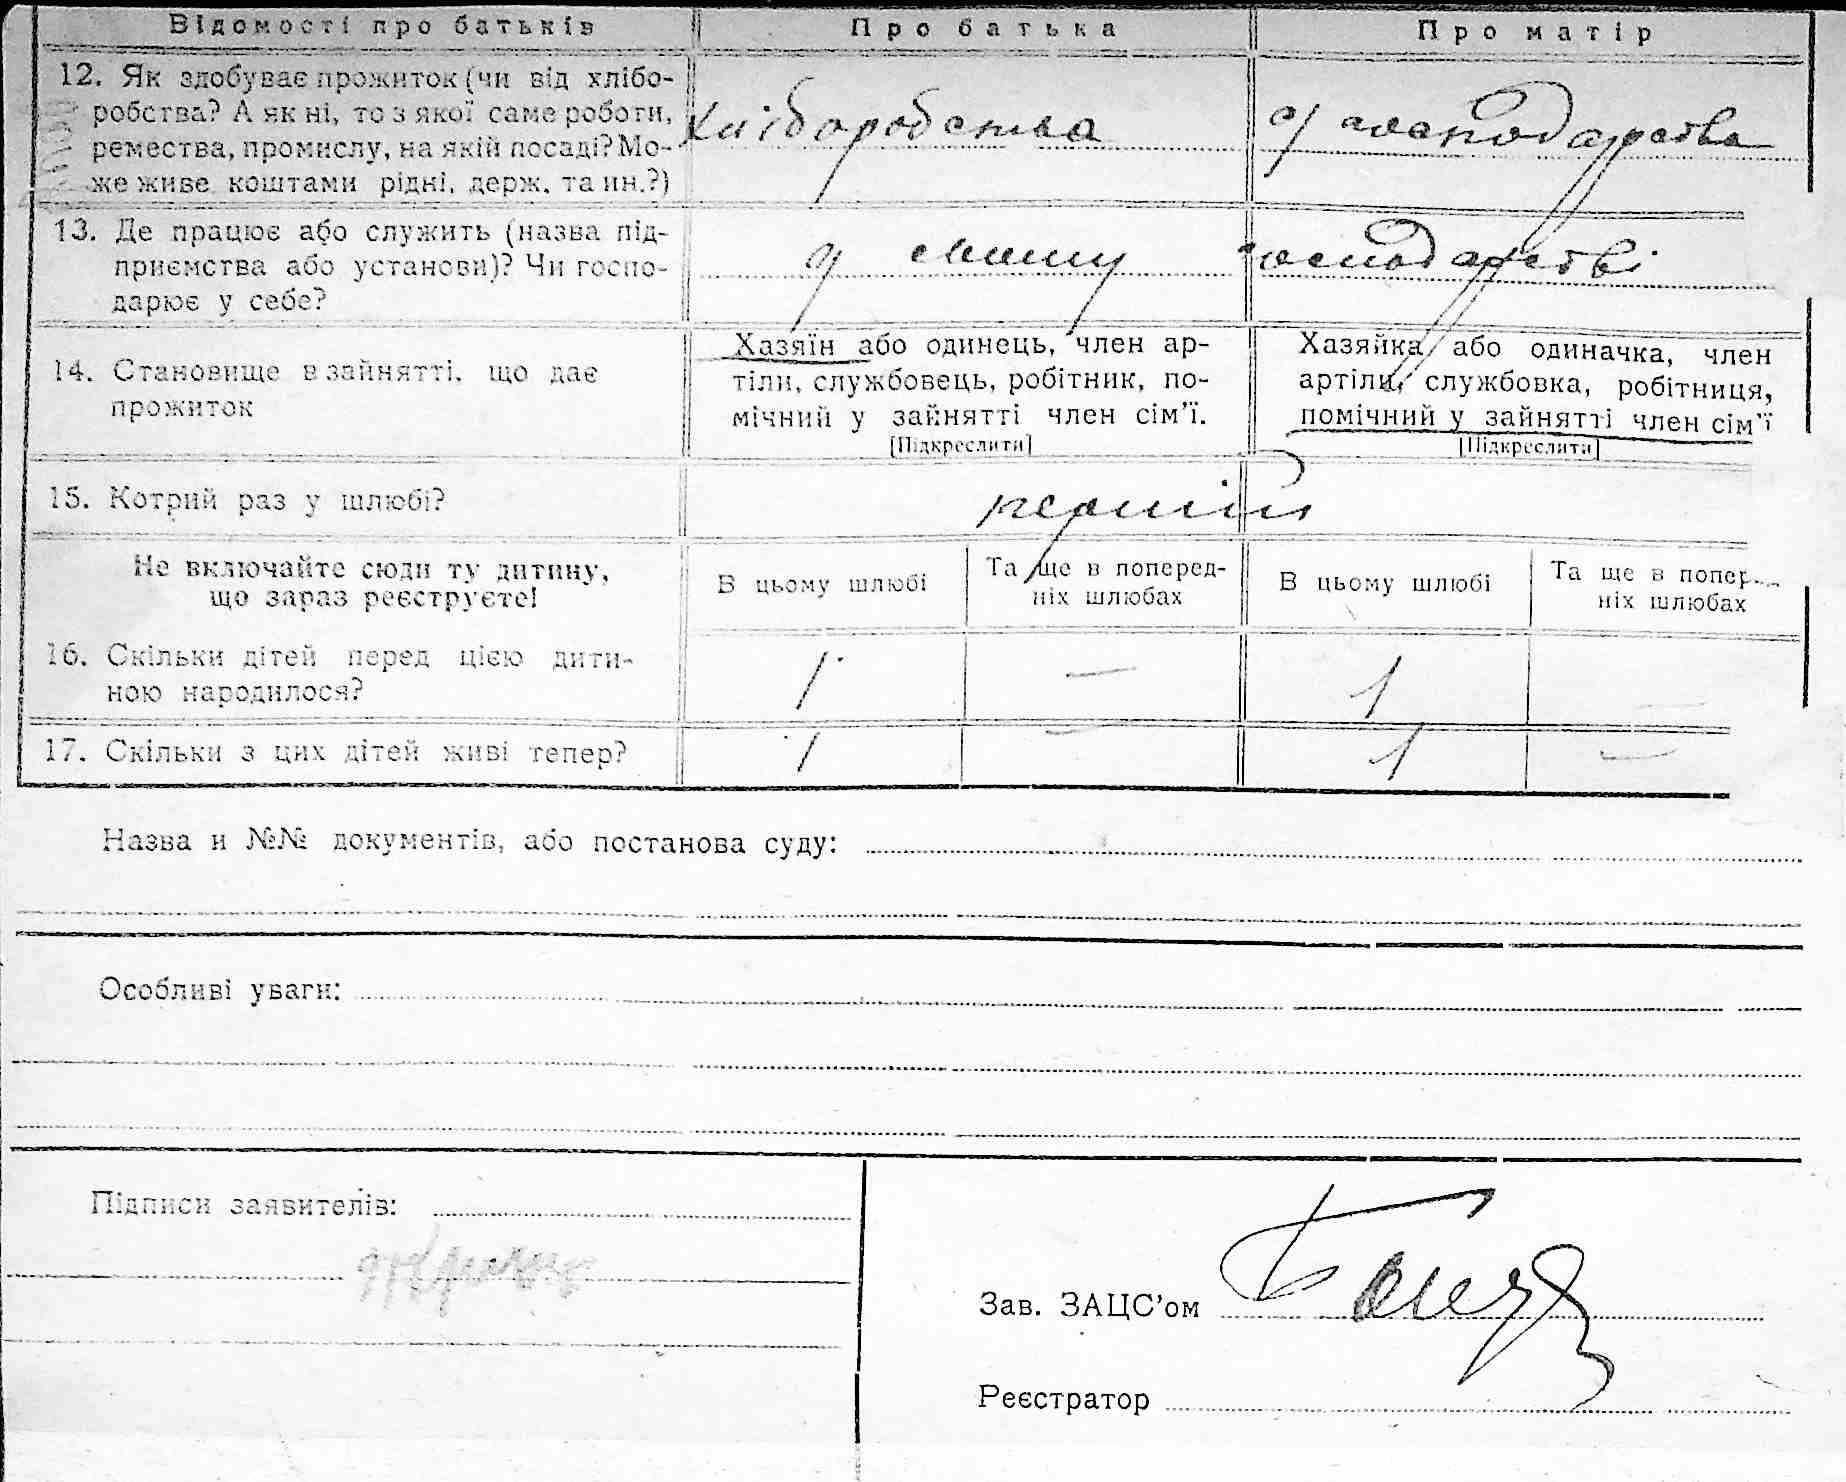 Відомості про батьків Про батька Про матір
12. Як здобуває прожиток (чи від хлібо-
робства? А як ні, то з якої саме роботи,
ремества, промислу, на якій посаді? Мо-
же живе коштами рідні, держ. та ин.?)
хліборобства
господарства
13. Де працює або служить (назва під-
приємства або установи)? Чи госпо-
дарює у себе?
у своему господарстві
14. Становище в зайнятті, що дає
прожиток
Хазяїн або одинець, член ар-
тіли, службовець, робітник, по-
мічний у зайнятті член сім'ї.
[Підкреслити]
Хазяйка або одиначка, член
артіли, службовка, робітниця,
помічний у зайнятті член сім'ї
[Підкреслити]
15. Котрий раз у шлюбі?
перший
Не включайте сюди ту дитину,
що зараз реєструєте!
В цьому шлюбі
Та ще в поперед-
ніх шлюбах
В цьому шлюбі
Та ще в попер
ніх шлюбах
16. Скільки дітей перед цією дити-
ною народилося?
1 — 1 —
17. Скільки з цих дітей живі тепер?
1 — 1 —
Назва и №№ документів, або постанова суду:
Особливі уваги:
Підписи заявителів:
Зав. ЗАЦС'ом
Реєстратор